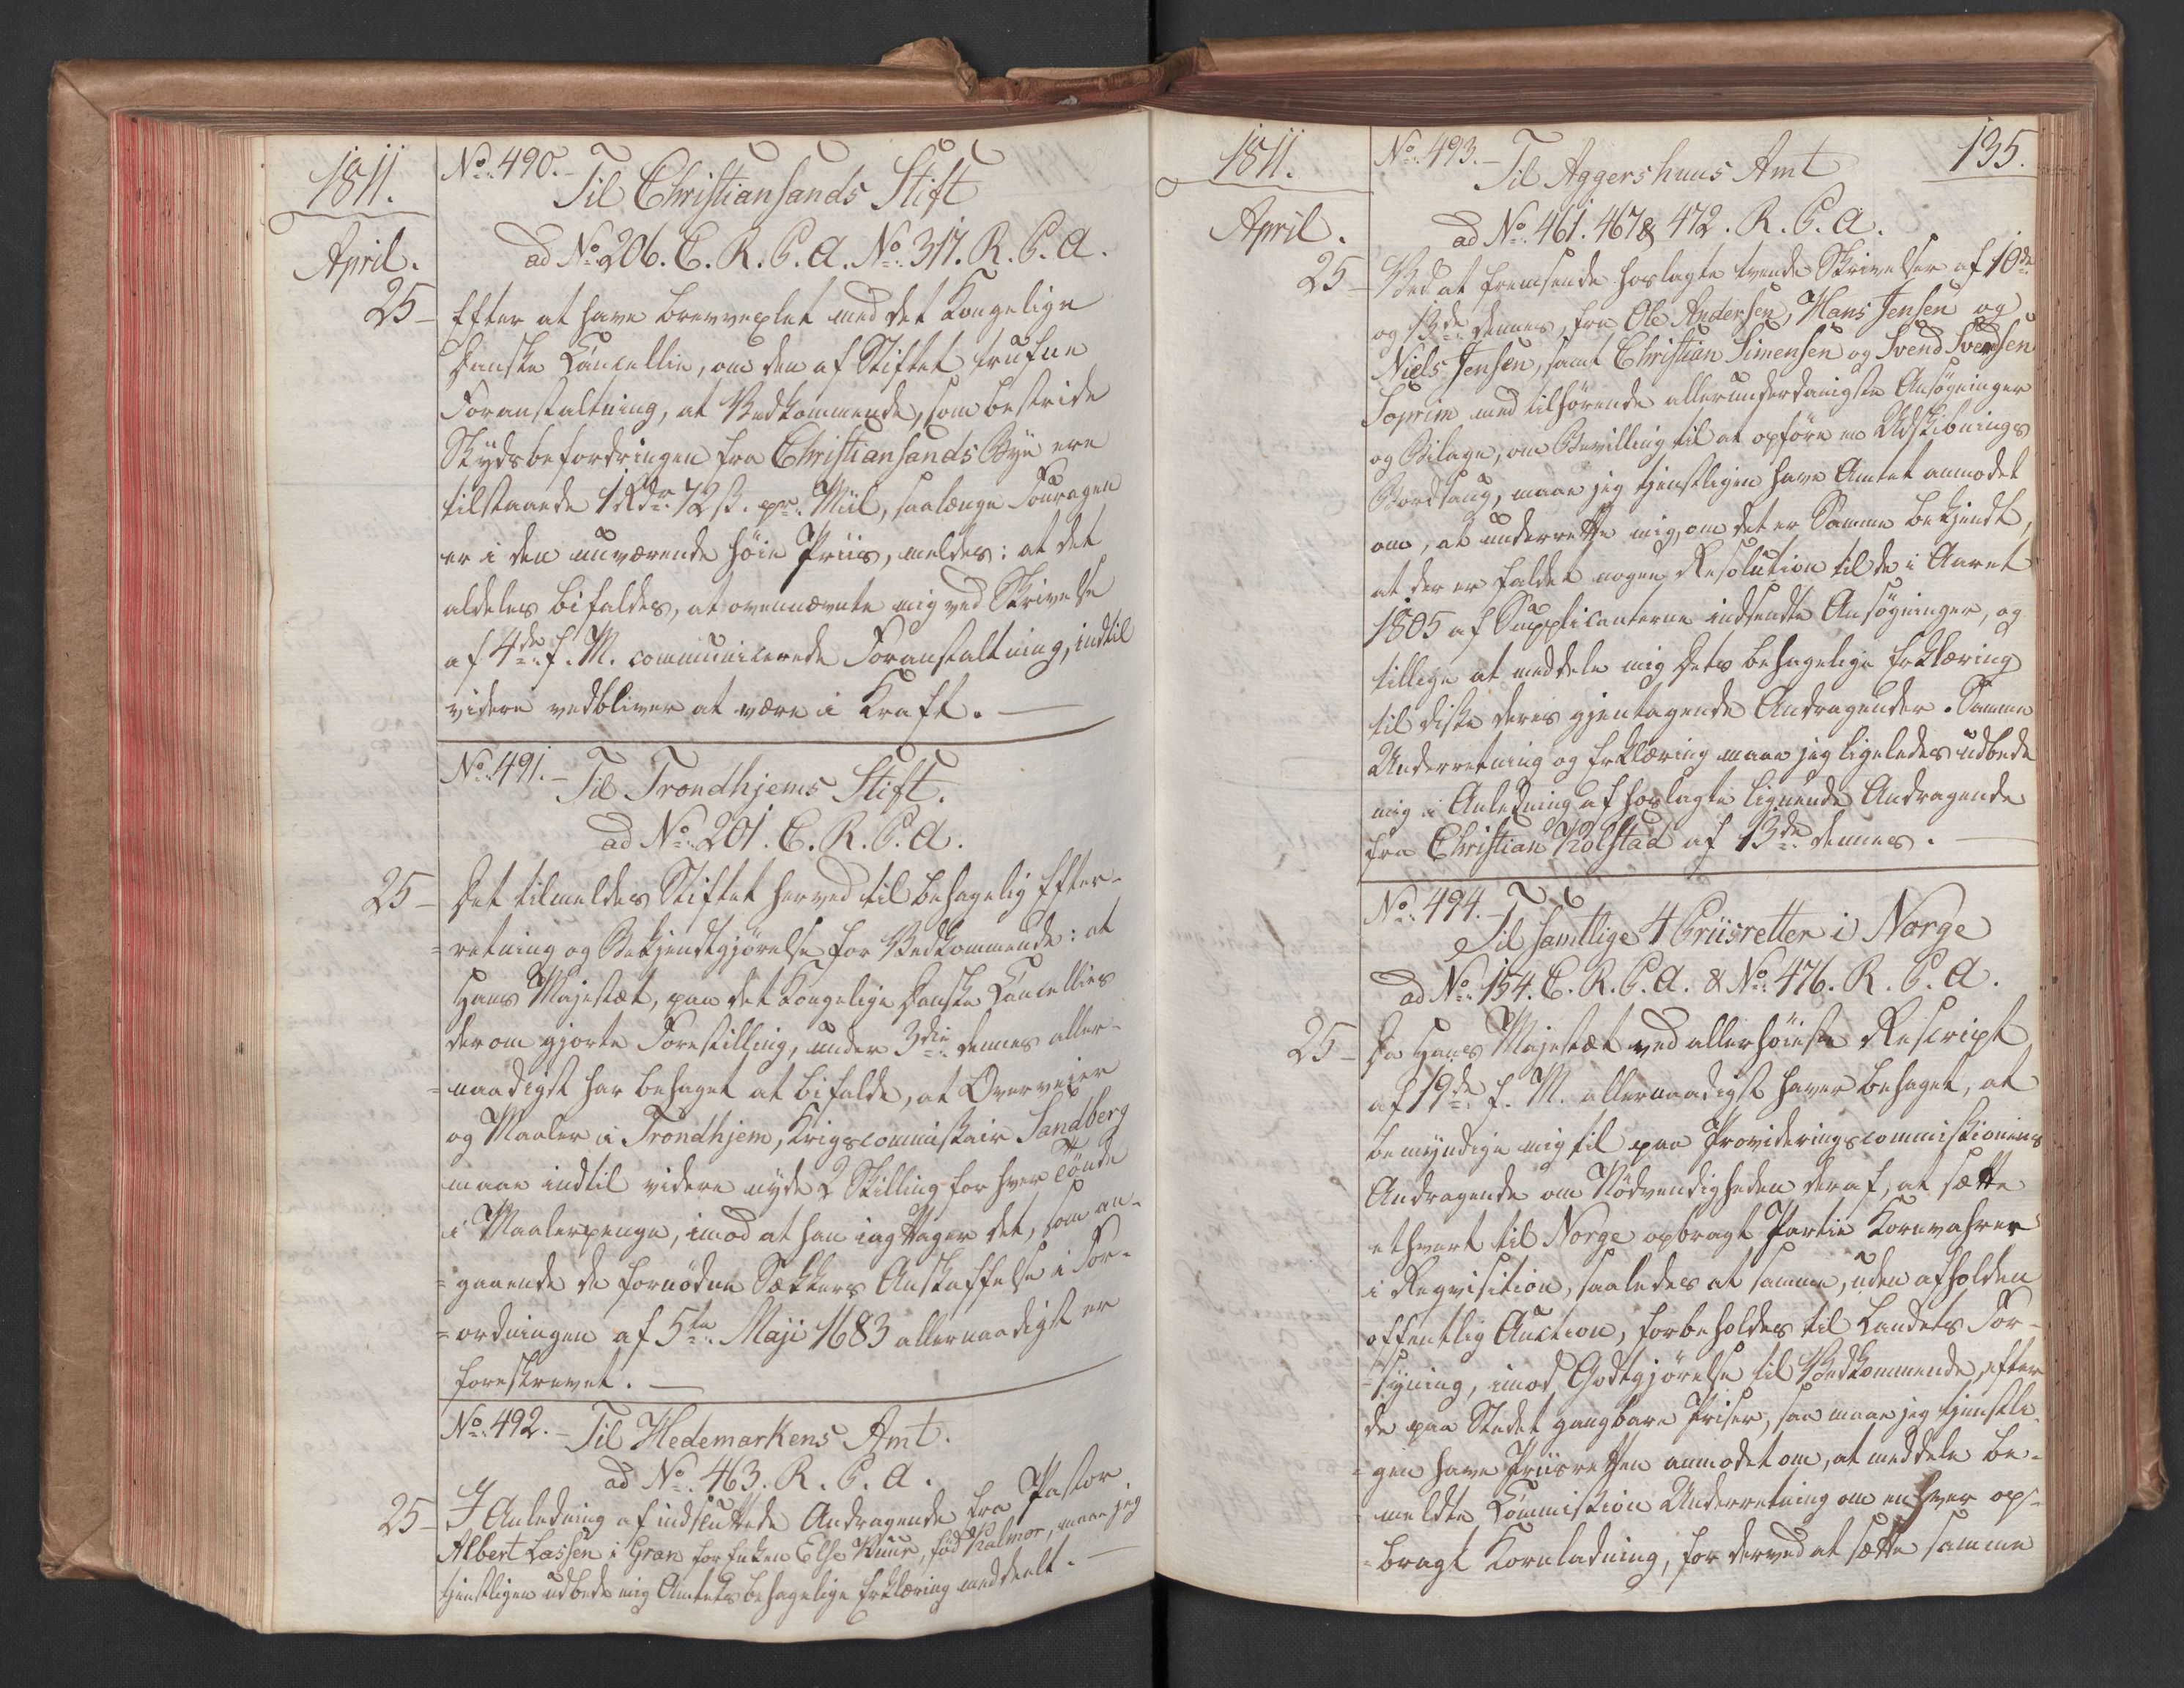 1811.
April.
No. 490.
Til Christiansands Stift
ad No. 206. C. R. P. A. No. 317. R. P. A.
25 - Efter at have brevvexlet med det Kongelige
Danske Cancellie, om den af Stiftet trufne
Foranstaltning, at Vedkommende, som bestride
Skydsbefordringen fra Christiansands Bye ere
tilstaaede 1 Rdr. 72 ß. pr. Miil, saalænge Fouragen
er i den nuværende høie Priis, meldes: at det
aldeles bifaldes, at ovennævnte mig ved Skrivelse
af 4de f. M. communicerede Foranstaltning, indtil
videre vedbliver at være i Kraft. —
No. 491. - Til Trondhjems Stift.
ad No. 201. C. R. P. A.
25 - Det tilmeldes Stiftet herved til behagelig Efter-
=retning og Bekjendtgjørelse for Vedkommende: at
Hans Majestæt, paa det Kongelige Danske Cancellies
derom gjorte Forestilling, under 3die dennes aller-
=naadigst har behaget at bifalde, at Overveier
og Maaler i Trondhjem, Krigscommissair Sandberg
maae indtil videre nyde 2 Skilling for hver Tönde
i Maalerpenge, imod at han iagttager det, som an-
=gaaende de fornödne Sækkers Anskaffelse i For-
=ordningen af 5te Maji 1683 allernaadigst er
foreskrevet. —
No. 492. - Til Hedemarkens Amt.
ad No. 463. R. P. A.
25 - I Anledning af indsluttede Andragende fra Pastor
Albert Lassen i Gran for Enken Else Ruue, fød Kalmor, maae jeg
tjenstligen udbede mig Amtets behagelige Erklæring meddeelt. —
1811.
April.
No. 493. -
135.
Til Aggershuus Amt
ad No. 461. 467 & 472. R. P. A.
25 - Ved at fremsende hoslagte tvende Skrivelser af 10de
og 13de dennes, fra Ole Andersen, Hans Jensen og
Niels Jensen, samt Christian Simensen og Svend Svendsen
Soprim med tilhørende allerunderdanigste Ansøgninger
og Bilage, om Bevilling til at opføre en Udskibnings
Bordsaug, maae jeg tjenstligen have Amtet anmodet
om, at underrette mig, om det er Samme bekjendt,
at der er faldet nogen Resolution til de i Aaret
1805 af Supplicanterne indsendte Ansøgninger, og
tillige at meddele mig Dets behagelige Erklæring
til diske deres gjentagende Andragender. Samme
Underretning og Erklæring maae jeg ligeledes udbede
mig i Anledning af hoslagte lignende Andragende
fra Christian Kolstad af 13de dennes. —
No. 494. -
Til samtlige 4 Priisretter i Norge
ad No. 154. C. R. P. A. & No. 476. R. P. A.
25 - Da Hans Majestæt ved allerhøieste Rescript
af 19de f. M. allernaadigst haver behaget, at
bemyndige mig til paa Provideringscommissionens
Andragende om Nödvendigheden deraf, at sætte
ethvert til Norge opbragt Partie Kornvahrer
i Reqvisition, saaledes at samme, uden afholden
offentlig Auction, forbeholdes til Landets For-
=syning, imod Godtgjörelse til Vedkommende, efter
de paa Stedet gangbare Priser, saa maae jeg tjenstli-
=gen have Priisretten anmodet om, at meddele be-
=meldte Commission Underretning om enhver op-
=bragt Kornladning, for derved at sætte samme